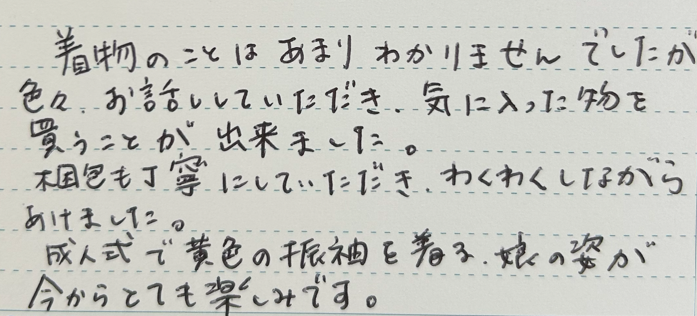 着物のことはあまりわかりませんでしたが
色々、お話ししていただき、気に入った物を
買うことが出来ました。
梱包も丁寧にしていただき、わくわくしながら
あけました。
成人式で黄色の振袖を着る、娘の姿が
今からとても楽しみです。